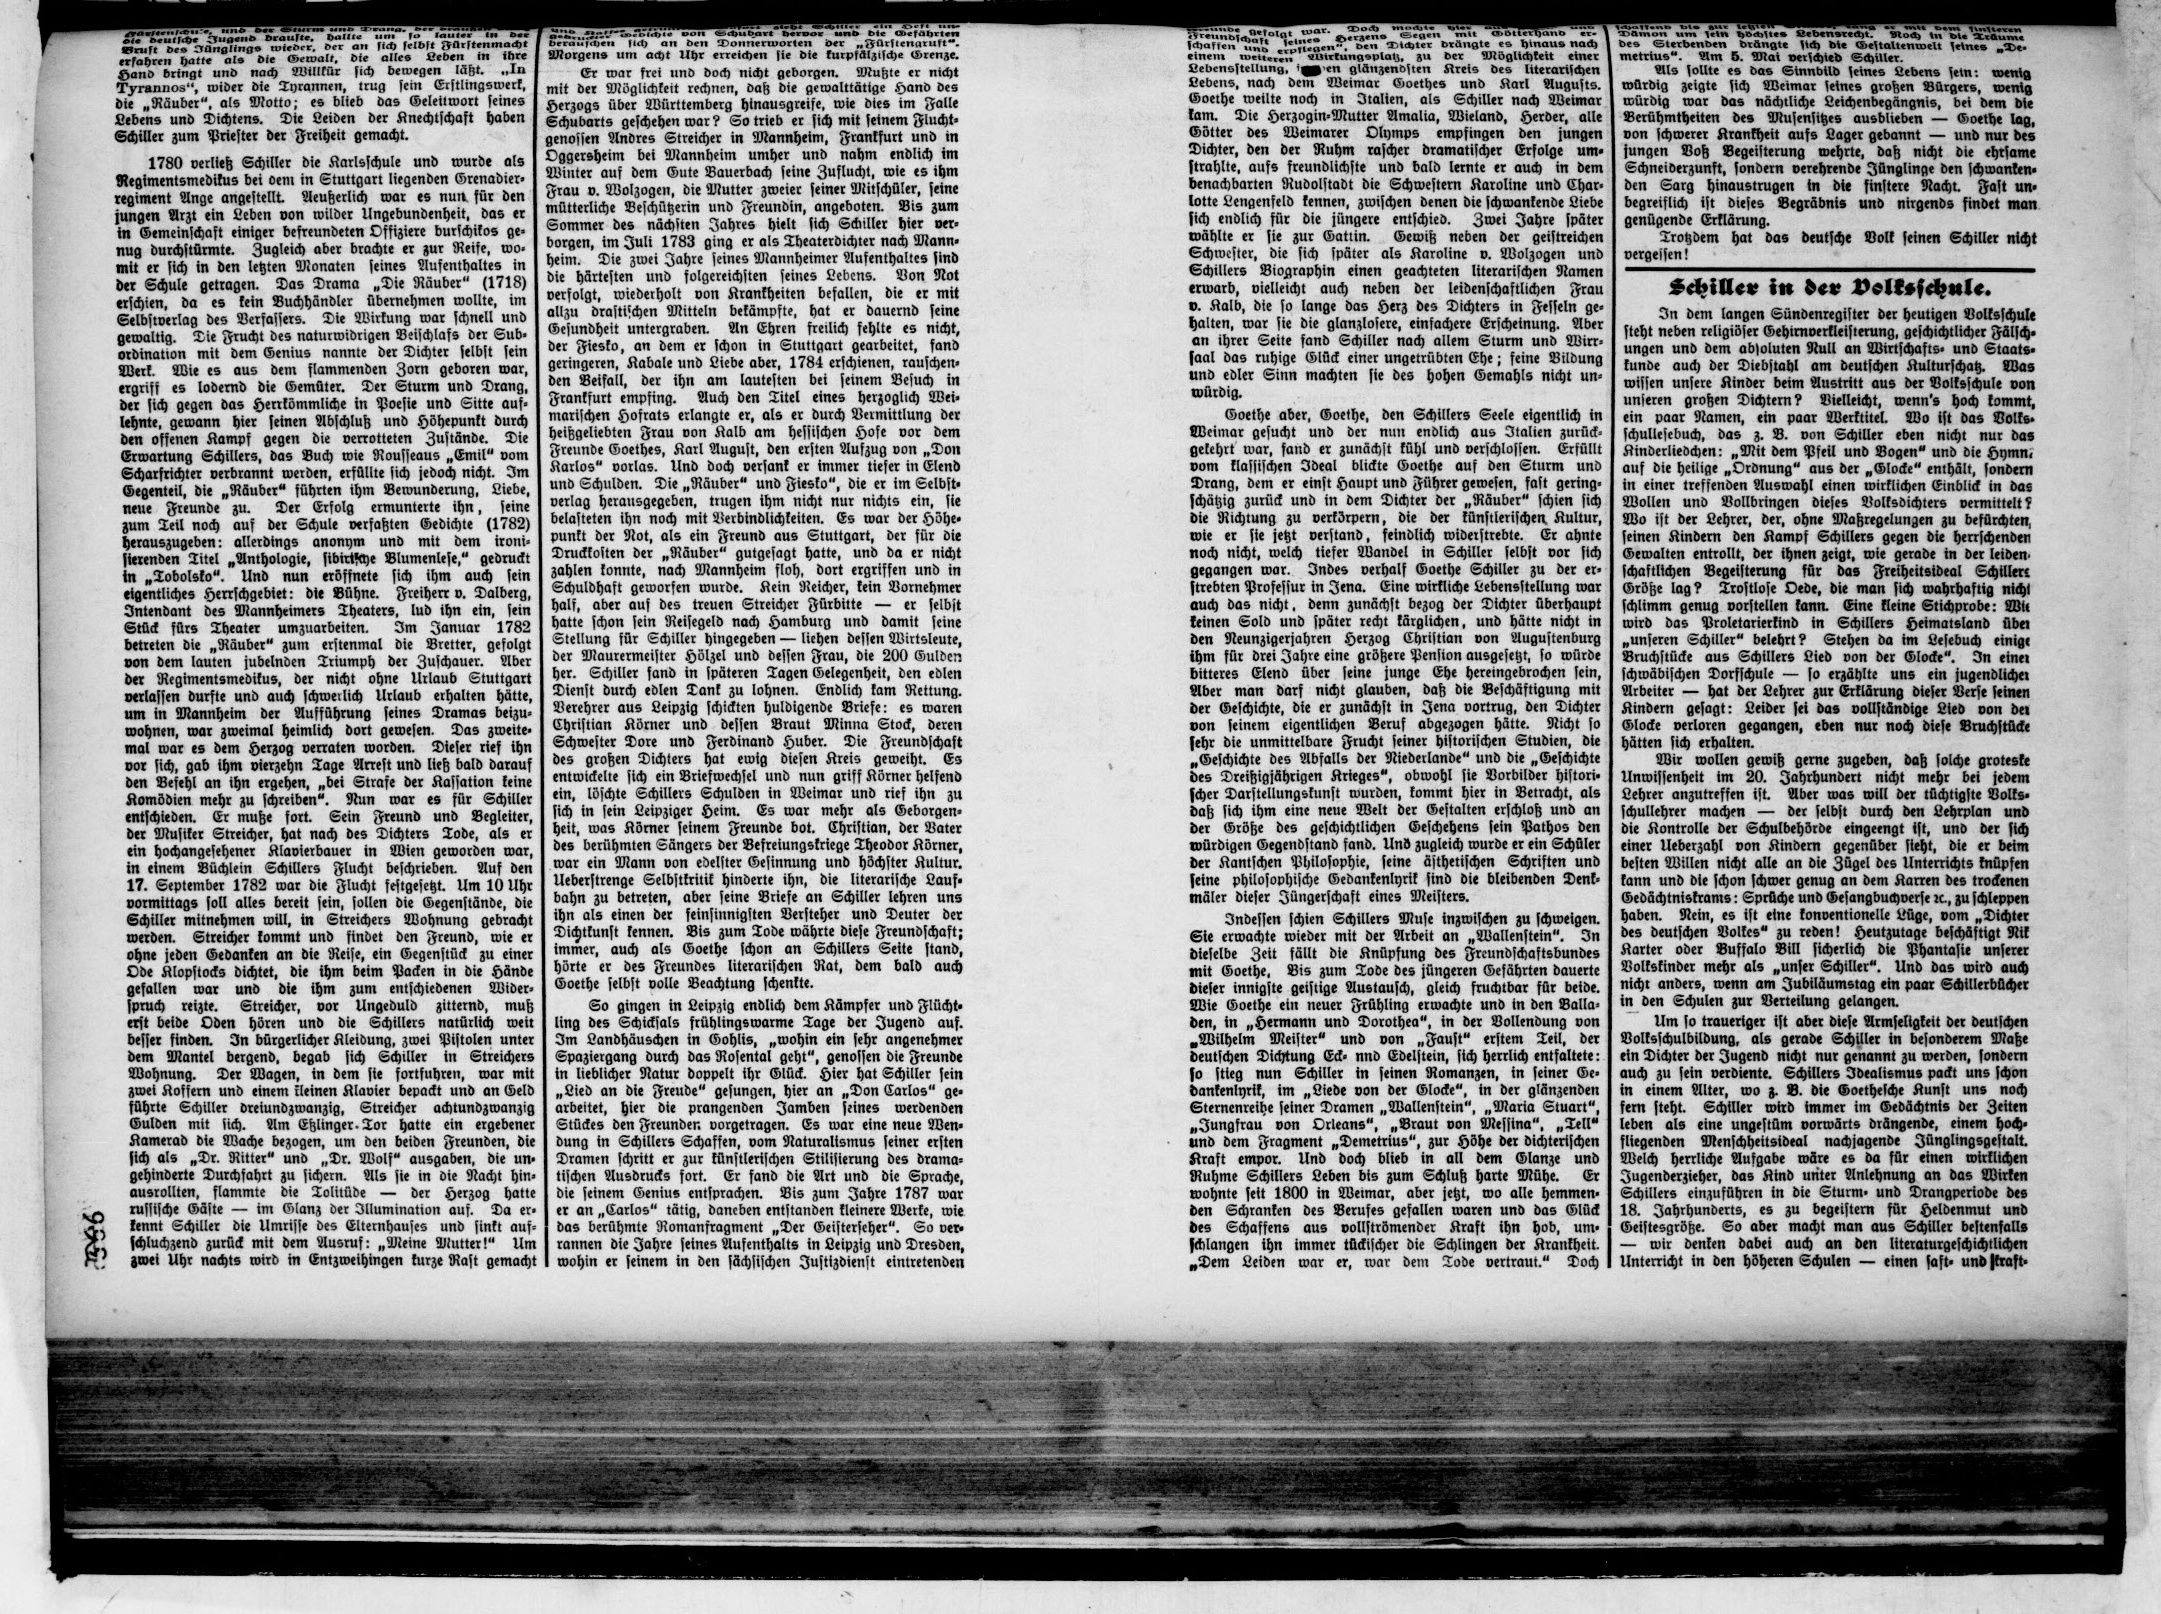 Fürstenschule, und der Sturm und Drang, der draußen
die deutsche Jugend brauste, hallte um so lauter in der
Brust des Jünglings wieder, der an sich selbst Fürstenmacht
erfahren hatte als die Gewalt, die alles Leben in ihre
Hand bringt und nach Willkür sich bewegen läßt. „In
Tyrannos“, wider die Tyrannen, trug sein Erstlingswerk,
die „Räuber“, als Motto; es blieb das Geleitwort seines
Lebens und Dichtens. Die Leiden der Knechtschaft haben
Schiller zum Priester der Freiheit gemacht.
1780 verließ Schiller die Karlsschule und wurde als
Regimentsmedikus bei dem in Stuttgart liegenden Grenadier-
regiment Ange angestellt. Aeußerlich war es nun für den
jungen Arzt ein Leben von wilder Ungebundenheit, das er
in Gemeinschaft einiger befreundeten Offiziere burschikos ge-
nug durchstürmte. Zugleich aber brachte er zur Reife, wo-
mit er sich in den letzten Monaten seines Aufenthaltes in
der Schule getragen. Das Drama „Die Räuber“ (1718)
erschien, da es kein Buchhändler übernehmen wollte, im
Selbstverlag des Verfassers. Die Wirkung war schnell und
gewaltig. Die Frucht des naturwidrigen Beischlafs der Sub-
ordination mit dem Genius nannte der Dichter selbst sein
Werk. Wie es aus dem flammenden Zorn geboren war,
ergriff es lodernd die Gemüter. Der Sturm und Drang,
der sich gegen das Herrkömmliche in Poesie und Sitte auf-
lehnte, gewann hier seinen Abschluß und Höhepunkt durch
den offenen Kampf gegen die verrotteten Zustände. Die
Erwartung Schillers, das Buch wie Rousseaus „Emil“ vom
Scharfrichter verbrannt werden, erfüllte sich jedoch nicht. Im
Gegenteil, die „Räuber“ führten ihm Bewunderung, Liebe,
neue Freunde zu. Der Erfolg ermunterte ihn, seine
zum Teil noch auf der Schule verfaßten Gedichte (1782)
herauszugeben: allerdings anonym und mit dem ironi-
sierenden Titel „Anthologie, sibirische Blumenlese,“ gedruckt
in „Tobolsko“. Und nun eröffnete sich ihm auch sein
eigentliches Herrschgebiet: die Bühne. Freiherr v. Dalberg,
Intendant des Mannheimers Theaters, lud ihn ein, sein
Stück fürs Theater umzuarbeiten. Im Januar 1782
betreten die „Räuber“ zum erstenmal die Bretter, gefolgt
von dem lauten jubelnden Triumph der Zuschauer. Aber
der Regimentsmedikus, der nicht ohne Urlaub Stuttgart
verlassen durfte und auch schwerlich Urlaub erhalten hätte,
um in Mannheim der Aufführung seines Dramas beizu-
wohnen, war zweimal heimlich dort gewesen. Das zweite-
mal war es dem Herzog verraten worden. Dieser rief ihn
vor sich, gab ihm vierzehn Tage Arrest und ließ bald darauf
den Befehl an ihn ergehen, „bei Strafe der Kassation keine
Komödien mehr zu schreiben“. Nun war es für Schiller
entschieden. Er muße fort. Sein Freund und Begleiter,
der Musiker Streicher, hat nach des Dichters Tode, als er
ein hochangesehener Klavierbauer in Wien geworden war,
in einem Büchlein Schillers Flucht beschrieben. Auf den
17. September 1782 war die Flucht festgesetzt. Um 10 Uhr
vormittags soll alles bereit sein, sollen die Gegenstände, die
Schiller mitnehmen will, in Streichers Wohnung gebracht
werden. Streicher kommt und findet den Freund, wie er
ohne jeden Gedanken an die Reise, ein Gegenstück zu einer
Ode Klopstocks dichtet, die ihm beim Packen in die Hände
gefallen war und die ihm zum entschiedenen Wider-
spruch reizte. Streicher, vor Ungeduld zitternd, muß
erst beide Oden hören und die Schillers natürlich weit
besser finden. In bürgerlicher Kleidung, zwei Pistolen unter
dem Mantel bergend, begab sich Schiller in Streichers
Wohnung. Der Wagen, in dem sie fortfuhren, war mit
zwei Koffern und einem kleinen Klavier bepackt und an Geld
führte Schiller dreiundzwanzig, Streicher achtundzwanzig
Gulden mit sich. Am Eßlinger-Tor hatte ein ergebener
Kamerad die Wache bezogen, um den beiden Freunden, die
sich als „Dr. Ritter“ und „Dr. Wolf“ ausgaben, die un-
gehinderte Durchfahrt zu sichern. Als sie in die Nacht hin-
ausrollten, flammte die Tolitüde — der Herzog hatte
russische Gäste — im Glanz der Illumination auf. Da er-
kennt Schiller die Umrisse des Elternhauses und sinkt auf-
schluchzend zurück mit dem Ausruf: „Meine Mutter!“ Um
zwei Uhr nachts wird in Entzweihingen kurze Rast gemacht
gedruckter Gedichte von Schubart hervor und die Gefährten
berauschen sich an den Donnerworten der „Fürstengruft“.
Morgens um acht Uhr erreichen sie die kurpfälzische Grenze.
Er war frei und doch nicht geborgen. Mußte er nicht
mit der Möglichkeit rechnen, daß die gewalttätige Hand des
Herzogs über Württemberg hinausgreife, wie dies im Falle
Schubarts geschehen war? So trieb er sich mit seinem Flucht-
genossen Andres Streicher in Mannheim, Frankfurt und in
Oggersheim bei Mannheim umher und nahm endlich im
Winter auf dem Gute Bauerbach seine Zuflucht, wie es ihm
Frau v. Wolzogen, die Mutter zweier seiner Mitschüler, seine
mütterliche Beschützerin und Freundin, angeboten. Bis zum
Sommer des nächsten Jahres hielt sich Schiller hier ver-
borgen, im Juli 1783 ging er als Theaterdichter nach Mann-
heim. Die zwei Jahre seines Mannheimer Aufenthaltes sind
die härtesten und folgereichsten seines Lebens. Von Not
verfolgt, wiederholt von Krankheiten befallen, die er mit
allzu drastischen Mitteln bekämpfte, hat er dauernd seine
Gesundheit untergraben. An Ehren freilich fehlte es nicht,
der Fiesko, an dem er schon in Stuttgart gearbeitet, fand
geringeren, Kabale und Liebe aber, 1784 erschienen, rauschen-
den Beifall, der ihn am lautesten bei seinem Besuch in
Frankfurt empfing. Auch den Titel eines herzoglich Wei-
marischen Hofrats erlangte er, als er durch Vermittlung der
heißgeliebten Frau von Kalb am hessischen Hofe vor dem
Freunde Goethes, Karl August, den ersten Aufzug von „Don
Karlos“ vorlas. Und doch versank er immer tiefer in Elend
und Schulden. Die „Räuber“ und Fiesko“, die er im Selbst-
verlag herausgegeben, trugen ihm nicht nur nichts ein, sie
belasteten ihn noch mit Verbindlichkeiten. Es war der Höhe-
punkt der Not, als ein Freund aus Stuttgart, der für die
Druckkosten der „Räuber“ gutgesagt hatte, und da er nicht
zahlen konnte, nach Mannheim floh, dort ergriffen und in
Schuldhaft geworfen wurde. Kein Reicher, kein Vornehmer
half, aber auf des treuen Streicher Fürbitte — er selbst
hatte schon sein Reisegeld nach Hamburg und damit seine
Stellung für Schiller hingegeben — liehen dessen Wirtsleute,
der Maurermeister Hölzel und dessen Frau, die 200 Gulden
her. Schiller fand in späteren Tagen Gelegenheit, den edlen
Dienst durch edlen Dank zu lohnen. Endlich kam Rettung.
Verehrer aus Leipzig schickten huldigende Briefe: es waren
Christian Körner und dessen Braut Minna Stock, deren
Schwester Dore und Ferdinand Huber. Die Freundschaft
des großen Dichters hat ewig diesen Kreis geweiht. Es
entwickelte sich ein Briefwechsel und nun griff Körner helfend
ein, löschte Schillers Schulden in Weimar und rief ihn zu
sich in sein Leipziger Heim. Es war mehr als Geborgen-
heit, was Körner seinem Freunde bot. Christian, der Vater
des berühmten Sängers der Befreiungskriege Theodor Körner,
war ein Mann von edelster Gesinnung und höchster Kultur.
Ueberstrenge Selbstkritik hinderte ihn, die literarische Lauf-
bahn zu betreten, aber seine Briefe an Schiller lehren uns
ihn als einen der feinsinnigsten Versteher und Deuter der
Dichtkunst kennen. Bis zum Tode währte diese Freundschaft;
immer, auch als Goethe schon an Schillers Seite stand,
hörte er des Freundes literarischen Rat, dem bald auch
Goethe selbst volle Beachtung schenkte.
So gingen in Leipzig endlich dem Kämpfer und Flücht-
ling des Schicksals frühlingswarme Tage der Jugend auf.
Im Landhäuschen in Gohlis, „wohin ein sehr angenehmer
Spaziergang durch das Rosental geht“, genossen die Freunde
in lieblicher Natur doppelt ihr Glück. Hier hat Schiller sein
„Lied an die Freude“ gesungen, hier an „Don Carlos“ ge-
arbeitet, hier die prangenden Jamben seines werdenden
Stückes den Freunden vorgetragen. Es war eine neue Wen-
dung in Schillers Schaffen, vom Naturalismus seiner ersten
Dramen schritt er zur künstlerischen Stilisierung des drama-
tischen Ausdrucks fort. Er fand die Art und die Sprache,
die seinem Genius entsprachen. Bis zum Jahre 1787 war
er an „Carlos“ tätig, daneben entstanden kleinere Werke, wie
das berühmte Romanfragment „Der Geisterseher“. So ver-
rannen die Jahre seines Aufenthalts in Leipzig und Dresden,
wohin er seinem in den sächsischen Justizdienst eintretenden
Freunde gefolgt war. Doch mochte hier auch
Freundschaft seines Herzens Segen mit Götterhand er-
schaffen und erpflegen“, den Dichter drängte es hinaus nach
einem weiteren Wirkungsplatz, zu der Möglichkeit einer
Lebensstellung, in den glänzendsten Kreis des literarischen
Lebens, nach dem Weimar Goethes und Karl Augusts.
Goethe weilte noch in Italien, als Schiller nach Weimar
kam. Die Herzogin-Mutter Amalia, Wieland, Herder, alle
Götter des Weimarer Olymps empfingen den jungen
Dichter, den der Ruhm rascher dramatischer Erfolge um-
strahlte, aufs freundlichste und bald lernte er auch in dem
benachbarten Rudolstadt die Schwestern Karoline und Char-
lotte Lengenfeld kennen, zwischen denen die schwankende Liebe
sich endlich für die jüngere entschied. Zwei Jahre später
wählte er sie zur Gattin. Gewiß neben der geistreichen
Schwester, die sich später als Karoline v. Wolzogen und
Schillers Biographin einen geachteten literarischen Namen
erwarb, vielleicht auch neben der leidenschaftlichen Frau
v. Kalb, die so lange das Herz des Dichters in Fesseln ge-
halten, war sie die glanzlosere, einfachere Erscheinung. Aber
an ihrer Seite fand Schiller nach allem Sturm und Wirr-
saal das ruhige Glück einer ungetrübten Ehe; feine Bildung
und edler Sinn machten sie des hohen Gemahls nicht un-
würdig.
Goethe aber, Goethe, den Schillers Seele eigentlich in
Weimar gesucht und der nun endlich aus Italien zurück-
gekehrt war, fand er zunächst kühl und verschlossen. Erfüllt
vom klassischen Ideal blickte Goethe auf den Sturm und
Drang, dem er einst Haupt und Führer gewesen, fast gering-
schätzig zurück und in dem Dichter der „Räuber“ schien sich
die Richtung zu verkörpern, die der künstlerischen Kultur,
wie er sie jetzt verstand, feindlich widerstrebte. Er ahnte
noch nicht, welch tiefer Wandel in Schiller selbst vor sich
gegangen war. Indes verhalf Goethe Schiller zu der er-
strebten Professur in Jena. Eine wirkliche Lebensstellung war
auch das nicht, denn zunächst bezog der Dichter überhaupt
keinen Sold und später recht kärglichen, und hätte nicht in
den Neunzigerjahren Herzog Christian von Augustenburg
ihm für drei Jahre eine größere Pension ausgesetzt, so würde
bitteres Elend über seine junge Ehe hereingebrochen sein,
Aber man darf nicht glauben, daß die Beschäftigung mit
der Geschichte, die er zunächst in Jena vortrug, den Dichter
von seinem eigentlichen Beruf abgezogen hätte. Nicht so
sehr die unmittelbare Frucht seiner historischen Studien, die
„Geschichte des Abfalls der Niederlande“ und die „Geschichte
des Dreißigjährigen Krieges“, obwohl sie Vorbilder histori-
scher Darstellungskunst wurden, kommt hier in Betracht, als
daß sich ihm eine neue Welt der Gestalten erschloß und an
der Größe des geschichtlichen Geschehens sein Pathos den
würdigen Gegendstand fand. Und zugleich wurde er ein Schüler
der Kantschen Philosophie, seine ästhetischen Schriften und
seine philosophische Gedankenlyrik sind die bleibenden Denk-
mäler dieser Jüngerschaft eines Meisters.
Indessen schien Schillers Muse inzwischen zu schweigen.
Sie erwachte wieder mit der Arbeit an „Wallenstein“. In
dieselbe Zeit fällt die Knüpfung des Freundschaftsbundes
mit Goethe. Bis zum Tode des jüngeren Gefährten dauerte
dieser innigste geistige Austausch, gleich fruchtbar für beide.
Wie Goethe ein neuer Frühling erwachte und in den Balla-
den, in „Hermann und Dorothea“, in der Vollendung von
„Wilhelm Meister“ und von „Faust“ erstem Teil, der
deutschen Dichtung Eck- nnd Edelstein, sich herrlich entfaltete:
so stieg nun Schiller in seinen Romanzen, in seiner Ge-
dankenlyrik, im „Liede von der Glocke“, in der glänzenden
Sternenreihe seiner Dramen „Wallenstein“, „Maria Stuart“,
„Jungfrau von Orleans“, „Braut von Messina“, „Tell“
und dem Fragment „Demetrius“, zur Höhe der dichterischen
Kraft empor. Und doch blieb in all dem Glanze und
Ruhme Schillers Leben bis zum Schluß harte Mühe. Er
wohnte seit 1800 in Weimar, aber jetzt, wo alle hemmen-
den Schranken des Berufes gefallen waren und das Glück
des Schaffens aus vollströmender Kraft ihn hob, um-
schlangen ihn immer tückischer die Schlingen der Krankheit.
„Dem Leiden war er, war dem Tode vertraut.“ Doch
schaffend bis zur letzten rang er mit dem finsteren
Dämon um sein höchstes Lebensrecht. Noch in die Träume
des Sterbenden drängte sich die Gestaltenwelt seines „De-
metrius“. Am 5. Mai verschied Schiller.
Als sollte es das Sinnbild seines Lebens sein: wenig
würdig zeigte sich Weimar seines großen Bürgers, wenig
würdig war das nächtliche Leichenbegängnis, bei dem die
Berühmtheiten des Musensitzes ausblieben — Goethe lag,
von schwerer Krankheit aufs Lager gebannt — und nur des
jungen Voß Begeisterung wehrte, daß nicht die ehrsame
Schneiderzunft, sondern verehrende Jünglinge den schwanken-
den Sarg hinaustrugen in die finstere Nacht. Fast un-
begreiflich ist dieses Begräbnis und nirgends findet man
genügende Erklärung.
Trotzdem hat das deutsche Volk seinen Schiller nicht
vergessen!
Schiller in der Volksschule.
In dem langen Sündenregister der heutigen Volksschule
steht neben religiöser Gehirnverkleisterung, geschichtlicher Fälsch-
ungen und dem absoluten Null an Wirtschafts- und Staats-
kunde auch der Diebstahl am deutschen Kulturschatz. Was
wissen unsere Kinder beim Austritt aus der Volksschule von
unseren großen Dichtern? Vielleicht, wenn's hoch kommt,
ein paar Namen, ein paar Werktitel. Wo ist das Volks-
schullesebuch, das z. B. von Schiller eben nicht nur das
Kinderliedchen: „Mit dem Pfeil und Bogen“ und die Hymne
auf die heilige „Ordnung“ aus der „Glocke“ enthält, sondern
in einer treffenden Auswahl einen wirklichen Einblick in das
Wollen und Vollbringen dieses Volksdichters vermittelt?
Wo ist der Lehrer, der, ohne Maßregelungen zu befürchten,
seinen Kindern den Kampf Schillers gegen die herrschenden
Gewalten entrollt, der ihnen zeigt, wie gerade in der leiden-
schaftlichen Begeisterung für das Freiheitsideal Schillers
Größe lag? Trostlose Oede, die man sich wahrhaftig nicht
schlimm genug vorstellen kann. Eine kleine Stichprobe: Wie
wird das Proletarierkind in Schillers Heimatsland über
„unseren Schiller“ belehrt? Stehen da im Lesebuch einige
Bruchstücke aus Schillers Lied von der Glocke“. In einer
schwäbischen Dorfschule — so erzählte uns ein jugendlicher
Arbeiter — hat der Lehrer zur Erklärung dieser Verse seinen
Kindern gesagt: Leider sei das vollständige Lied von der
Glocke verloren gegangen, eben nur noch diese Bruchstücke
hätten sich erhalten.
Wir wollen gewiß gerne zugeben, daß solche groteske
Unwissenheit im 20. Jahrhundert nicht mehr bei jedem
Lehrer anzutreffen ist. Aber was will der tüchtigste Volks-
schullehrer machen — der selbst durch den Lehrplan und
die Kontrolle der Schulbehörde eingeengt ist, und der sich
einer Ueberzahl von Kindern gegenüber sieht, die er beim
besten Willen nicht alle an die Zügel des Unterrichts knüpfen
kann und die schon schwer genug an dem Karren des trockenen
Gedächtniskrams: Sprüche und Gesangbuchverse ꝛc., zu schleppen
haben. Nein, es ist eine konventionelle Lüge, vom „Dichter
des deutschen Volkes“ zu reden! Heutzutage beschäftigt Nik
Karter oder Buffalo Bill sicherlich die Phantasie unserer
Volkskinder mehr als „unser Schiller“. Und das wird auch
nicht anders, wenn am Jubiläumstag ein paar Schillerbücher
in den Schulen zur Verteilung gelangen.
Um so traueriger ist aber diese Armseligkeit der deutschen
Volksschulbildung, als gerade Schiller in besonderem Maße
ein Dichter der Jugend nicht nur genannt zu werden, sondern
auch zu sein verdiente. Schillers Idealismus packt uns schon
in einem Alter, wo z. B. die Goethesche Kunst uns noch
fern steht. Schiller wird immer im Gedächtnis der Zeiten
leben als eine ungestüm vorwärts drängende, einem hoch-
fliegenden Menschheitsideal nachjagende Jünglingsgestalt.
Welch herrliche Aufgabe wäre es da für einen wirklichen
Jugenderzieher, das Kind unter Anlehnung an das Wirken
Schillers einzuführen in die Sturm- und Drangperiode des
18. Jahrhunderts, es zu begeistern für Heldenmut und
Geistesgröße. So aber macht man aus Schiller bestenfalls
— wir denken dabei auch an den literaturgeschichtlichen
Unterricht in den höheren Schulen — einen saft- und kraft-